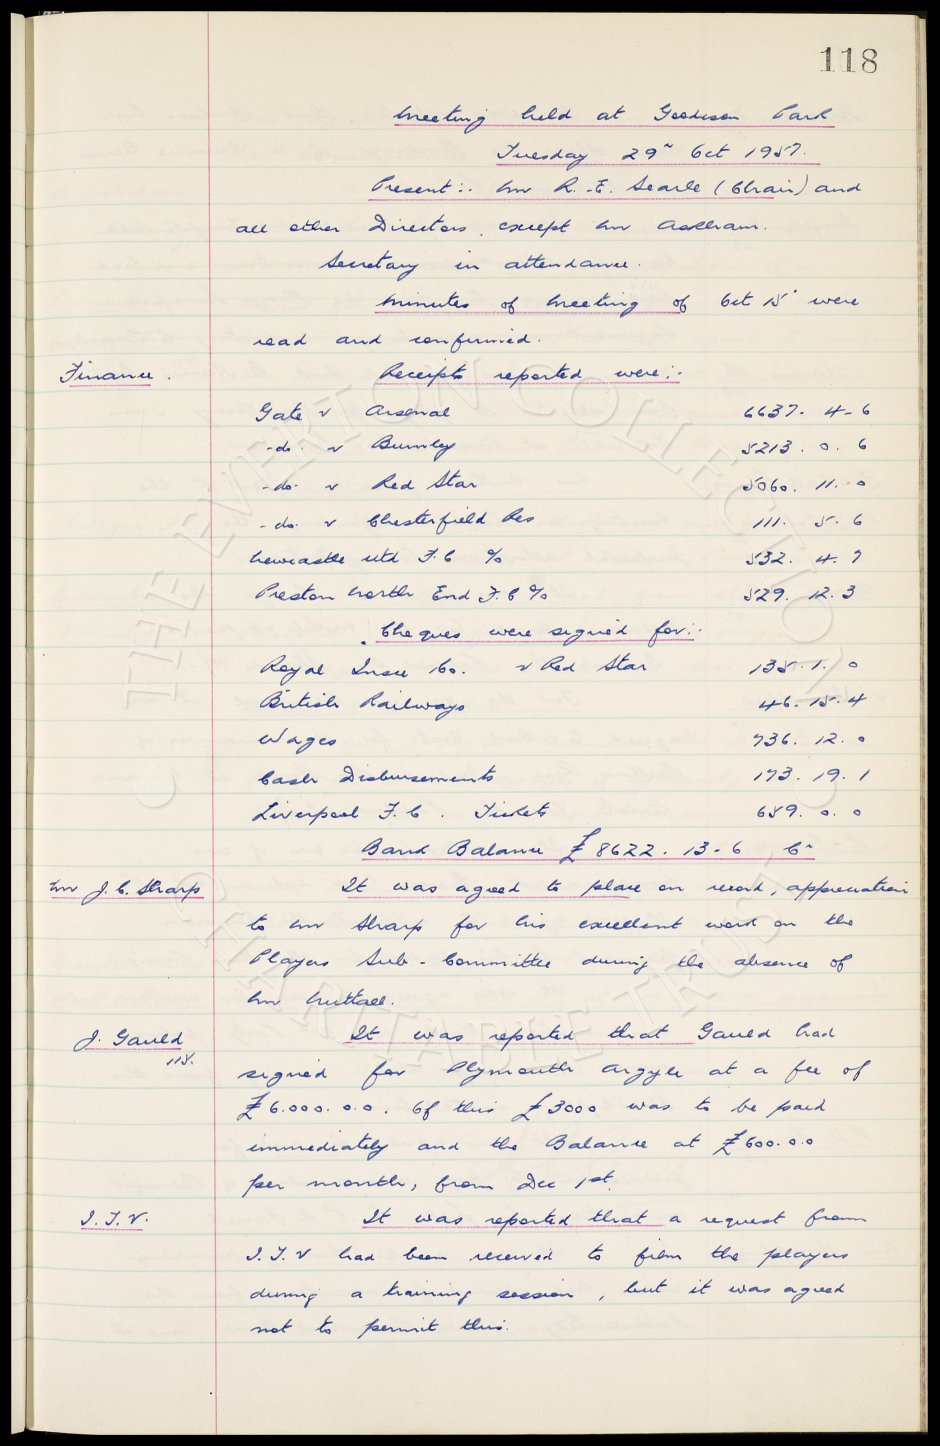 118
Meeting held at Goodison Park
Tuesday 29th Oct 1957.
Present:. Mr R. E. Searle (Chair) and
all other Directors, except Mr Askham.
Secretary in attendance.
Minutes of Meeting of Oct 15th were
read and confirmed.
Finance. Receipts reported were:.
Gate v Arsenal 6637. 4. 6
-do. v Burnley 5213. 0. 6
-do. v Red Star 5060. 11. 0
-do. v Chesterfield Res 111. 5. 6
Newcastle Utd F.C % 532. 4. 7
Preston North End F.C % 529. 12. 3
Cheques were signed for:.
Royal Insce Co. v Red Star 135. 1. 0
British Railways 46. 15. 4
Wages 736. 12. 0
Cash Disbursements 173. 19. 1
Liverpool F.C. Tickets 659. 0. 0
Bank Balance £8622. 13. 6 Cr
Mr J.C. Sharp It was agreed to place on record, appreciation
to Mr Sharp for his excellent work on the
Players Sub-Committee during the absence of
Mr Nuttall.
J. Gauld It was reported that Gauld had
115. signed for Plymouth Argyle at a fee of
£6.000.0.0. Of this £3000 was to be paid
immediately and the Balance at £600.0.0
per month, from Dec 1st.
I.T.V. It was reported that a request from
I.T.V had been received to film the players
during a training session, but it was agreed
not to permit this.
© THE EVERTON COLLECTION CHARITABLE TRUST